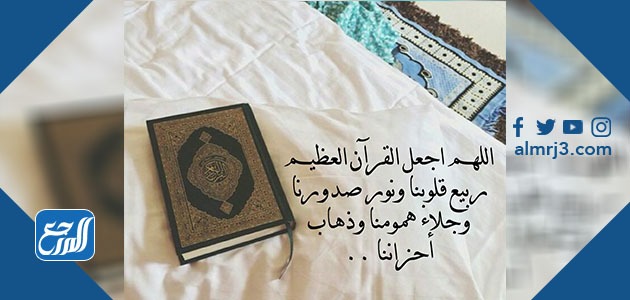 اللهم اجعل القرآن العظيم
ربيع قلوبنا ونور صدورنا
وجلاء همومنا وذهاب
أحزاننا . .
almrj3.com
المرجع